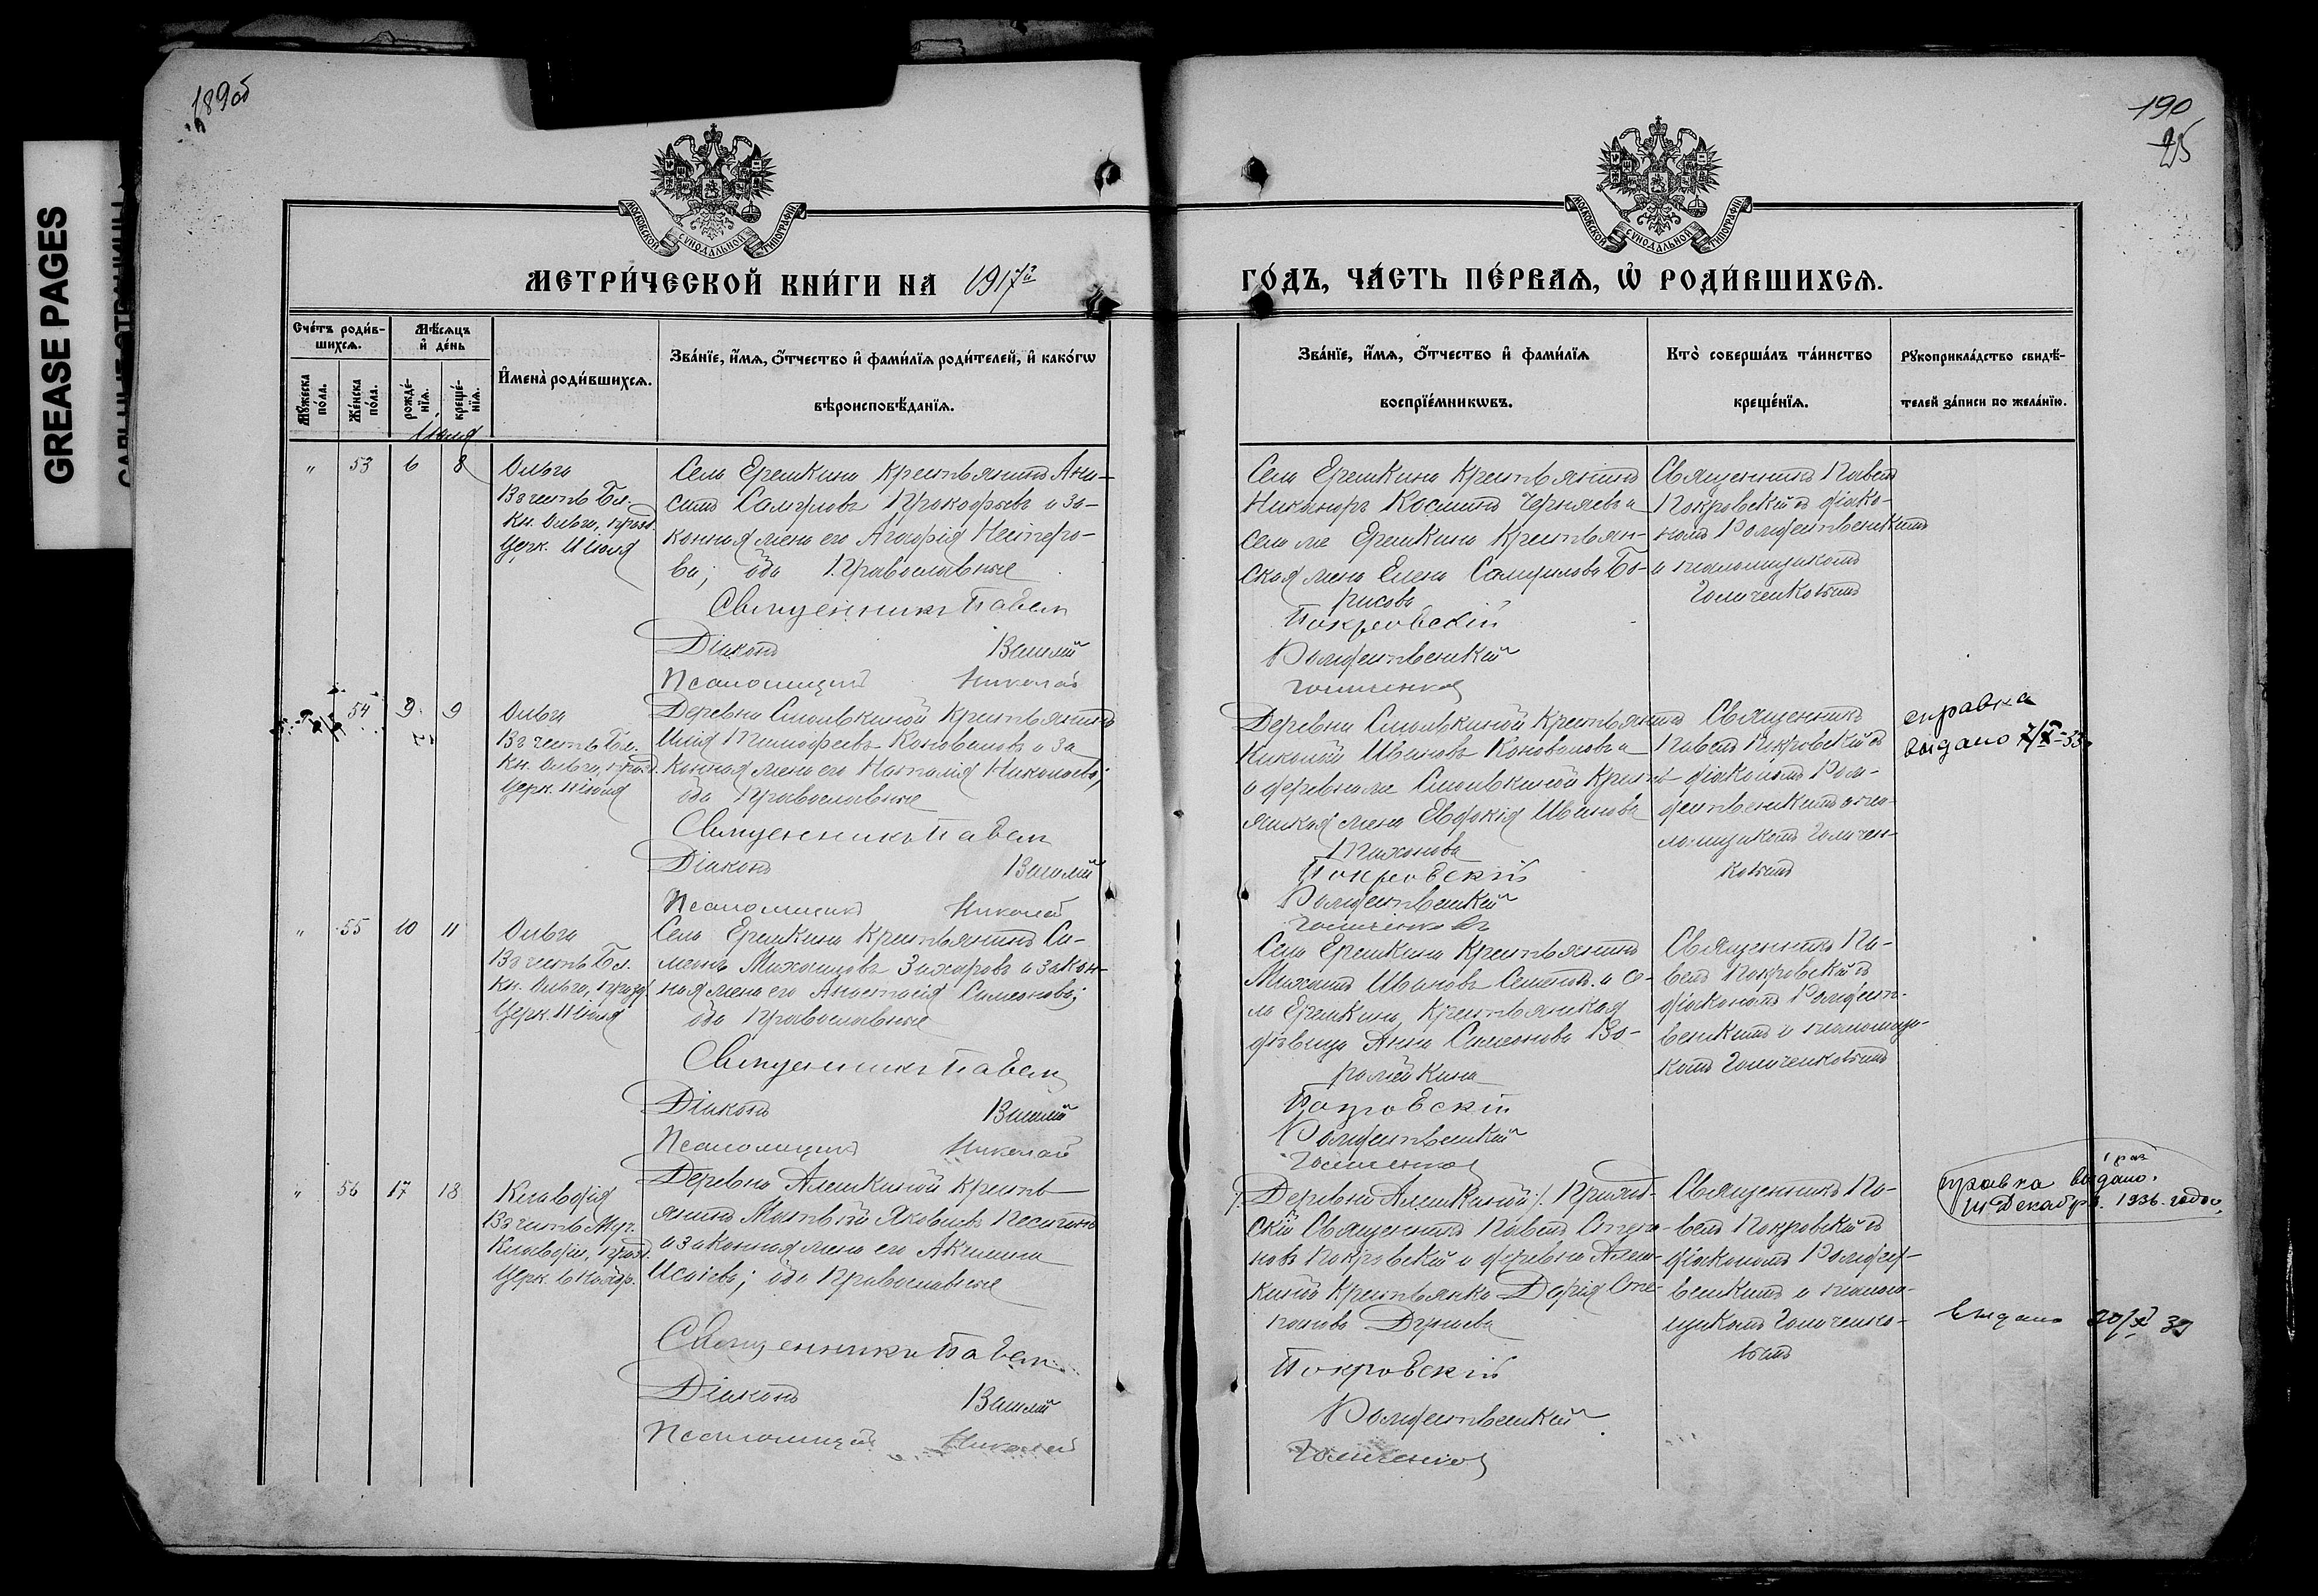 189об
190
25
GREASE PAGES
МОСКОВСКОЙ СѴНОДАЛЬНОЙ ТИПОГРАФІИ
МОСКОВСКОЙ СѴНОДАЛЬНОЙ ТИПОГРАФІИ
МЕТРИ́ЧЕСКОЙ КНИ́ГИ НА 1917й
ГО́ДЪ, ЧА́СТЬ ПЕ́РВАѦ, Ѽ РОДИ́ВШИХСѦ.
Сче́тъ роди́в-
шихсѧ.
Мꙋ́жеска по́ла.
Же́нска по́ла.
Мѣ́сѧцъ и҆ де́нь
рожде́-
нїѧ.
креще́-
нїѧ.
И҆мена̀ роди́вшихсѧ.
Зва́нїе, и҆́мѧ, ѻ҆́тчество и҆ фами́лїѧ роди́телей, и҆ како́гѡ
вѣроисповѣ́данїѧ.
Зва́нїе, и҆́мѧ, ѻ҆́тчество и҆ фами́лїѧ
воспрїе́мникѡвъ.
Кто̀ соверша́лъ та́инство
креще́нїѧ.
Рꙋкоприкла́дство свидѣ́-
телей за́писи по жела́нїю.
Июля
" 53 6 8
Ольга
В честь Бл.
Кн. Ольги, празд.
Церк. 11 Июля
Села Ерешкина Крестьянинъ Ани-
симъ Самуиловъ Прокофьевъ и за-
конная жена его Агафія Нестеро-
ва; оба Православные
Священникъ Павелъ
Діаконъ Василій
Псаломщикъ Николай
Села Ерешкина Крестьянинъ
Никаноръ Косминъ Черняевъ и
села же Ерешкина Крестьян-
ская жена Елена Самуилова Бо-
рисова
Покровскій
Рождественскій
Голиченковъ
Священникъ Павелъ
Покровскій съ діако-
номъ Рождественскимъ
и псаломщикомъ
Голиченковымъ
54 9 9
Ольга
В честь Бл.
Кн. Ольги, празд.
Церк. 11 Июля
Деревни Смолькиной Крестьянинъ
Илія Тимофеевъ Коноваловъ и за
конная жена его Наталія Николаева;
оба Православные
Священникъ Павелъ
Діаконъ Василій
Псаломщикъ Николай
Деревни Смолькиной Крестьянинъ
Николай Ивановъ Коноваловъ и
и деревни же Смолькиной Кресть-
янская жена Евдокія Иванова
Тихонова
Покровскій
Рождественскій
Голиченковъ
Священникъ
Павелъ Покровскій съ
діакономъ Рож-
дественскимъ и пса-
ломщикомъ Голичен-
ковымъ
справка
выдано 7/X-33
" 55 10 11
Ольга
В честь Бл.
Кн. Ольги, празд.
Церк. 11 Июля
Села Ерешкина Крестьянинъ Си-
меонъ Михаиловъ Захаровъ и закон-
ная жена его Анастасія Симеонова;
оба Православные
Священникъ Павелъ
Діаконъ Василій
Псаломщикъ Николай
Села Ерешкина Крестьянинъ
Михаилъ Ивановъ Семеновъ и се-
ла Ерешкина, Крестьянская
дѣвица Анна Симеонова Во-
ролейкина
Покровскій
Рождественскій
Голиченковъ
Священникъ Па-
велъ Покровскій съ
діакономъ Рождест-
венскимъ и псаломщи-
комъ Голиченковымъ
" 56 17 18
Клавдія
В честь Муч.
Клавдіи, празд.
Церк.
Деревни Алешкиной Кресть-
янинъ Матвѣй Яковлевъ
и законная жена его Акилина
Исаева; оба Православные
Священникъ Павелъ
Діаконъ Василій
Псаломщикъ Николай
Деревни Алешкиной
Священникъ Павелъ
Покровскій и деревни Алеш-
киной Крестьянка Дарія Сте-
панова
Покровскій
Рождественскій
Голиченковъ
Священникъ Па-
велъ Покровскій съ
діакономъ Рождест-
венскимъ и псалом-
щикомъ Голиченко-
вымъ
1 раз
справка выдано.
Декабря. 1936. года
Выдано 20/X 39